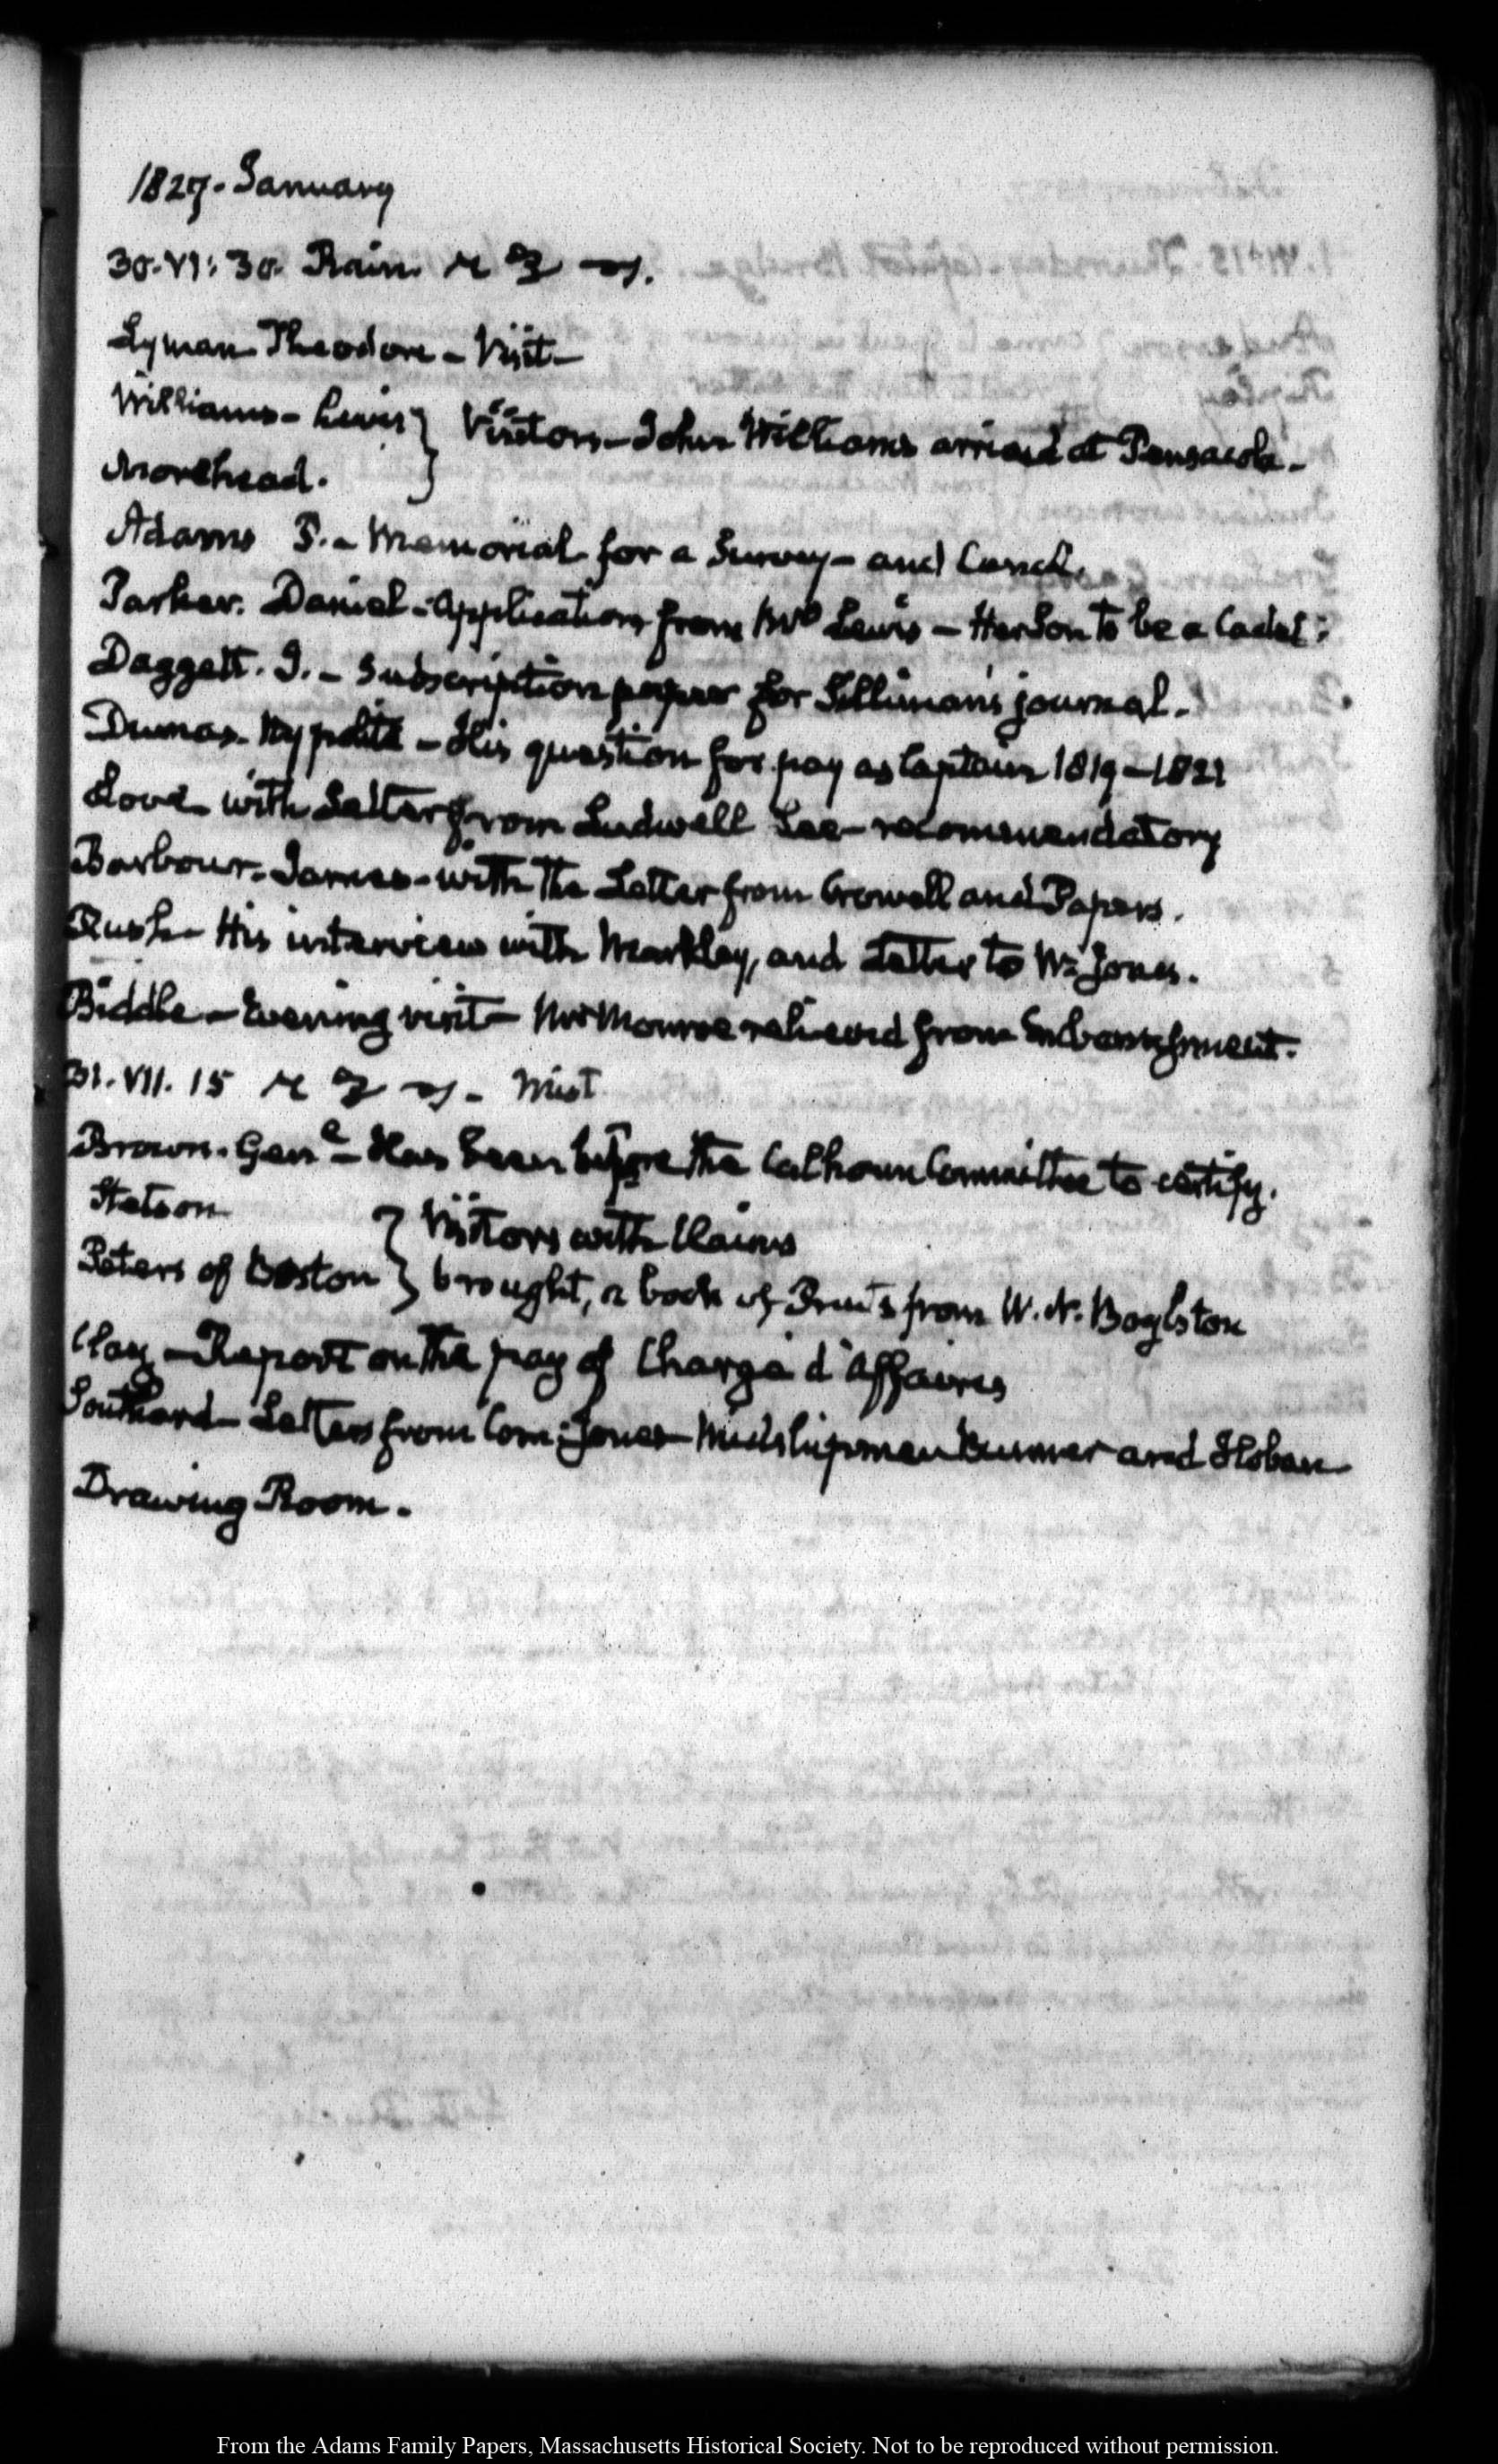 1827. January
30. VI: 30. Rain.
Lyman Theodore - Visit -
Williams - Lewis } Visitors - John Williams arrived at Pensacola -
Morehead.
Adams P. - Memorial for a Survey - and Canal.
Parker. Daniel - Application from Mrs Lewis - Her Son to be a Cadet.
Daggett. J. - Subscription paper for Silliman's journal.
Dumas. Hypolite - His question for pay as Captain 1819 - 1821
Love - with Letter from Ludwell Lee - recommendatory
Barbour. James - with the Letter from Crowell and Papers.
Rush - His interview with Markley, and Letter to Wm Jones.
Biddle - Evening visit - Mr Monroe relieved from Embarrassment.
31. VII. 15 - Mist
Brown. Genl - Has been before the Calhoun Committee to certify.
Stetson } Visitors with Claims
Peters of Boston } brought, a book of from W. N. Boylston
Clay - Report on the pay of Chargé d'Affaires
Southard - Letters from Com: Jones - Midshipmen and Hoban
Drawing Room.
From the Adams Family Papers, Massachusetts Historical Society. Not to be reproduced without permission.